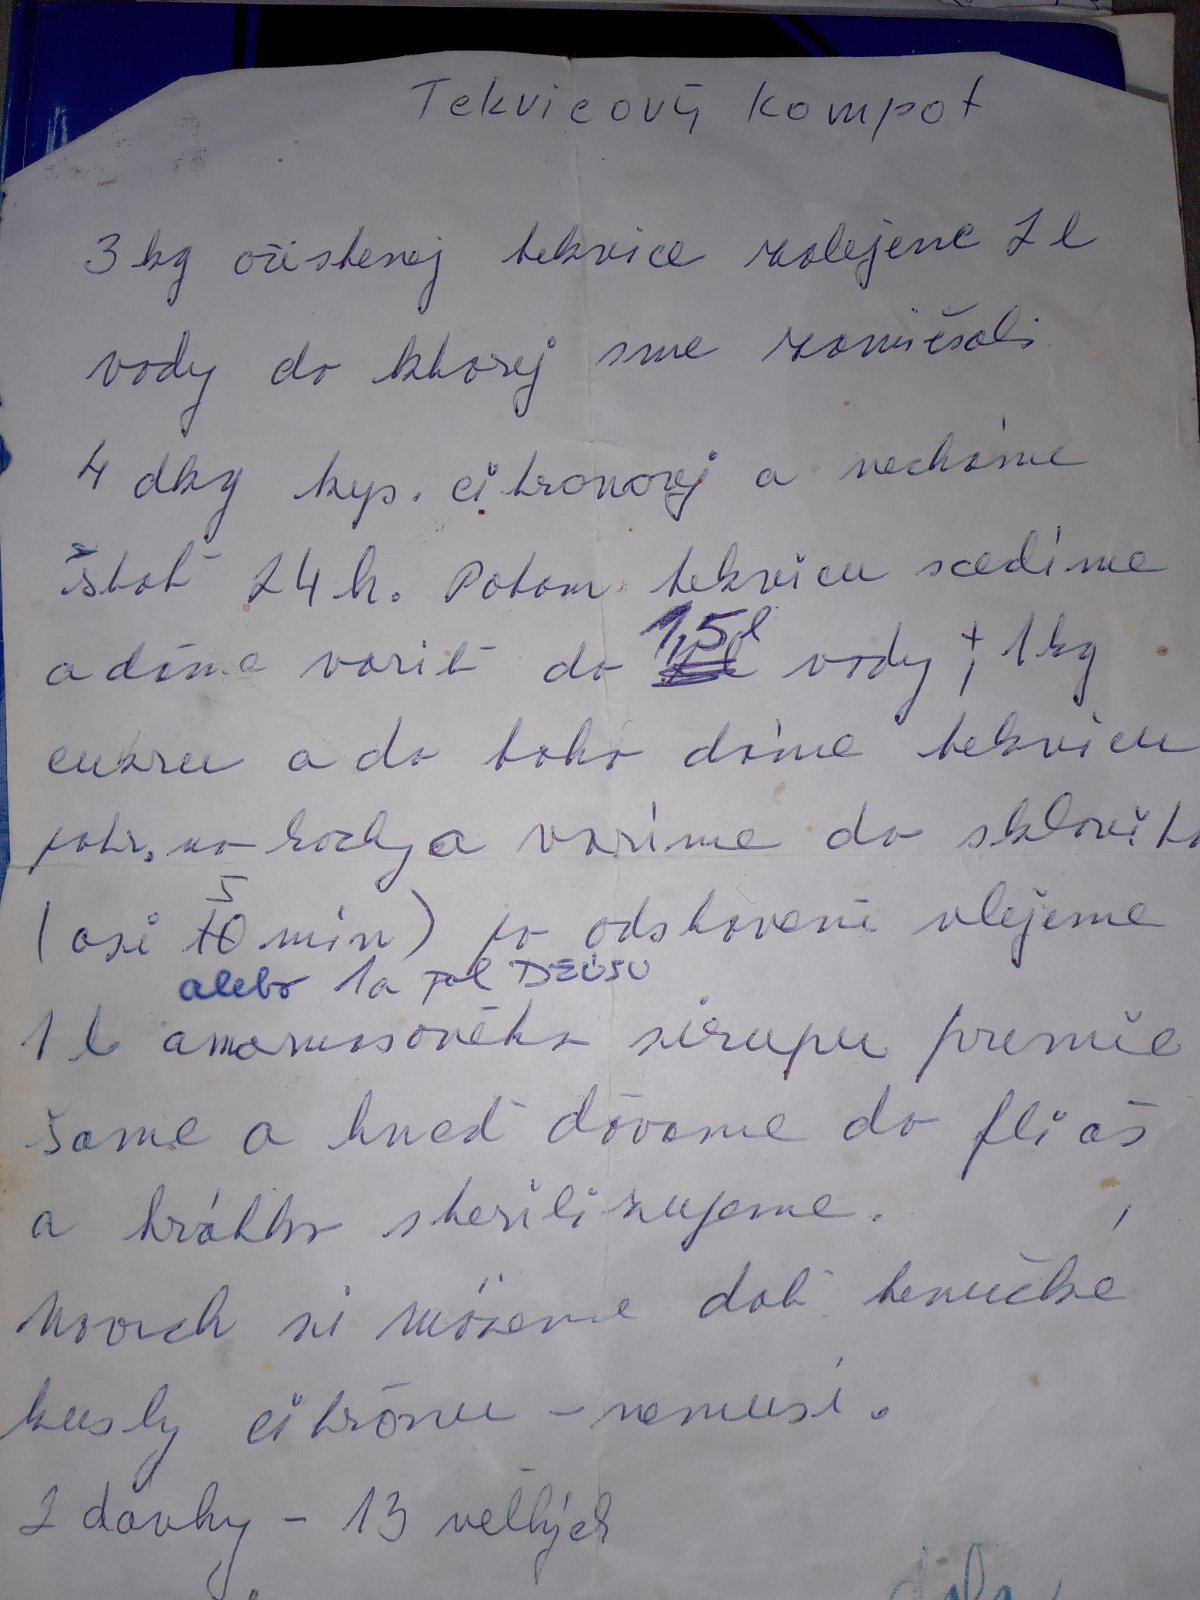 Tekvicový kompot
3 kg očistenej tekvice zalejeme 2 l
vody do ktorej sme zamiešali
4 dkg kys. citronovej a necháme
stáť 24 h. Potom tekvicu scedíme
a dáme variť do 1,5 l vody + 1 kg
cukru a do toho dáme tekvicu
a varíme do sklovita
(asi 5 min) po odstavení vlejeme
alebo 1 a pol DŽÚSU
1 l ananasového sirupu premie
šame a hneď dávame do fliáš
a krátko sterilizujeme.
Navrch si môžeme dať tenučké
kusky citrónu - nemusí.
2 dávky - 13 veľkých